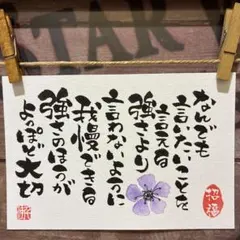 なんでも
言いたいことを
言える
強さより
言わないように
我慢できる
強さのほうが
よっぽど大切
招福
STAR